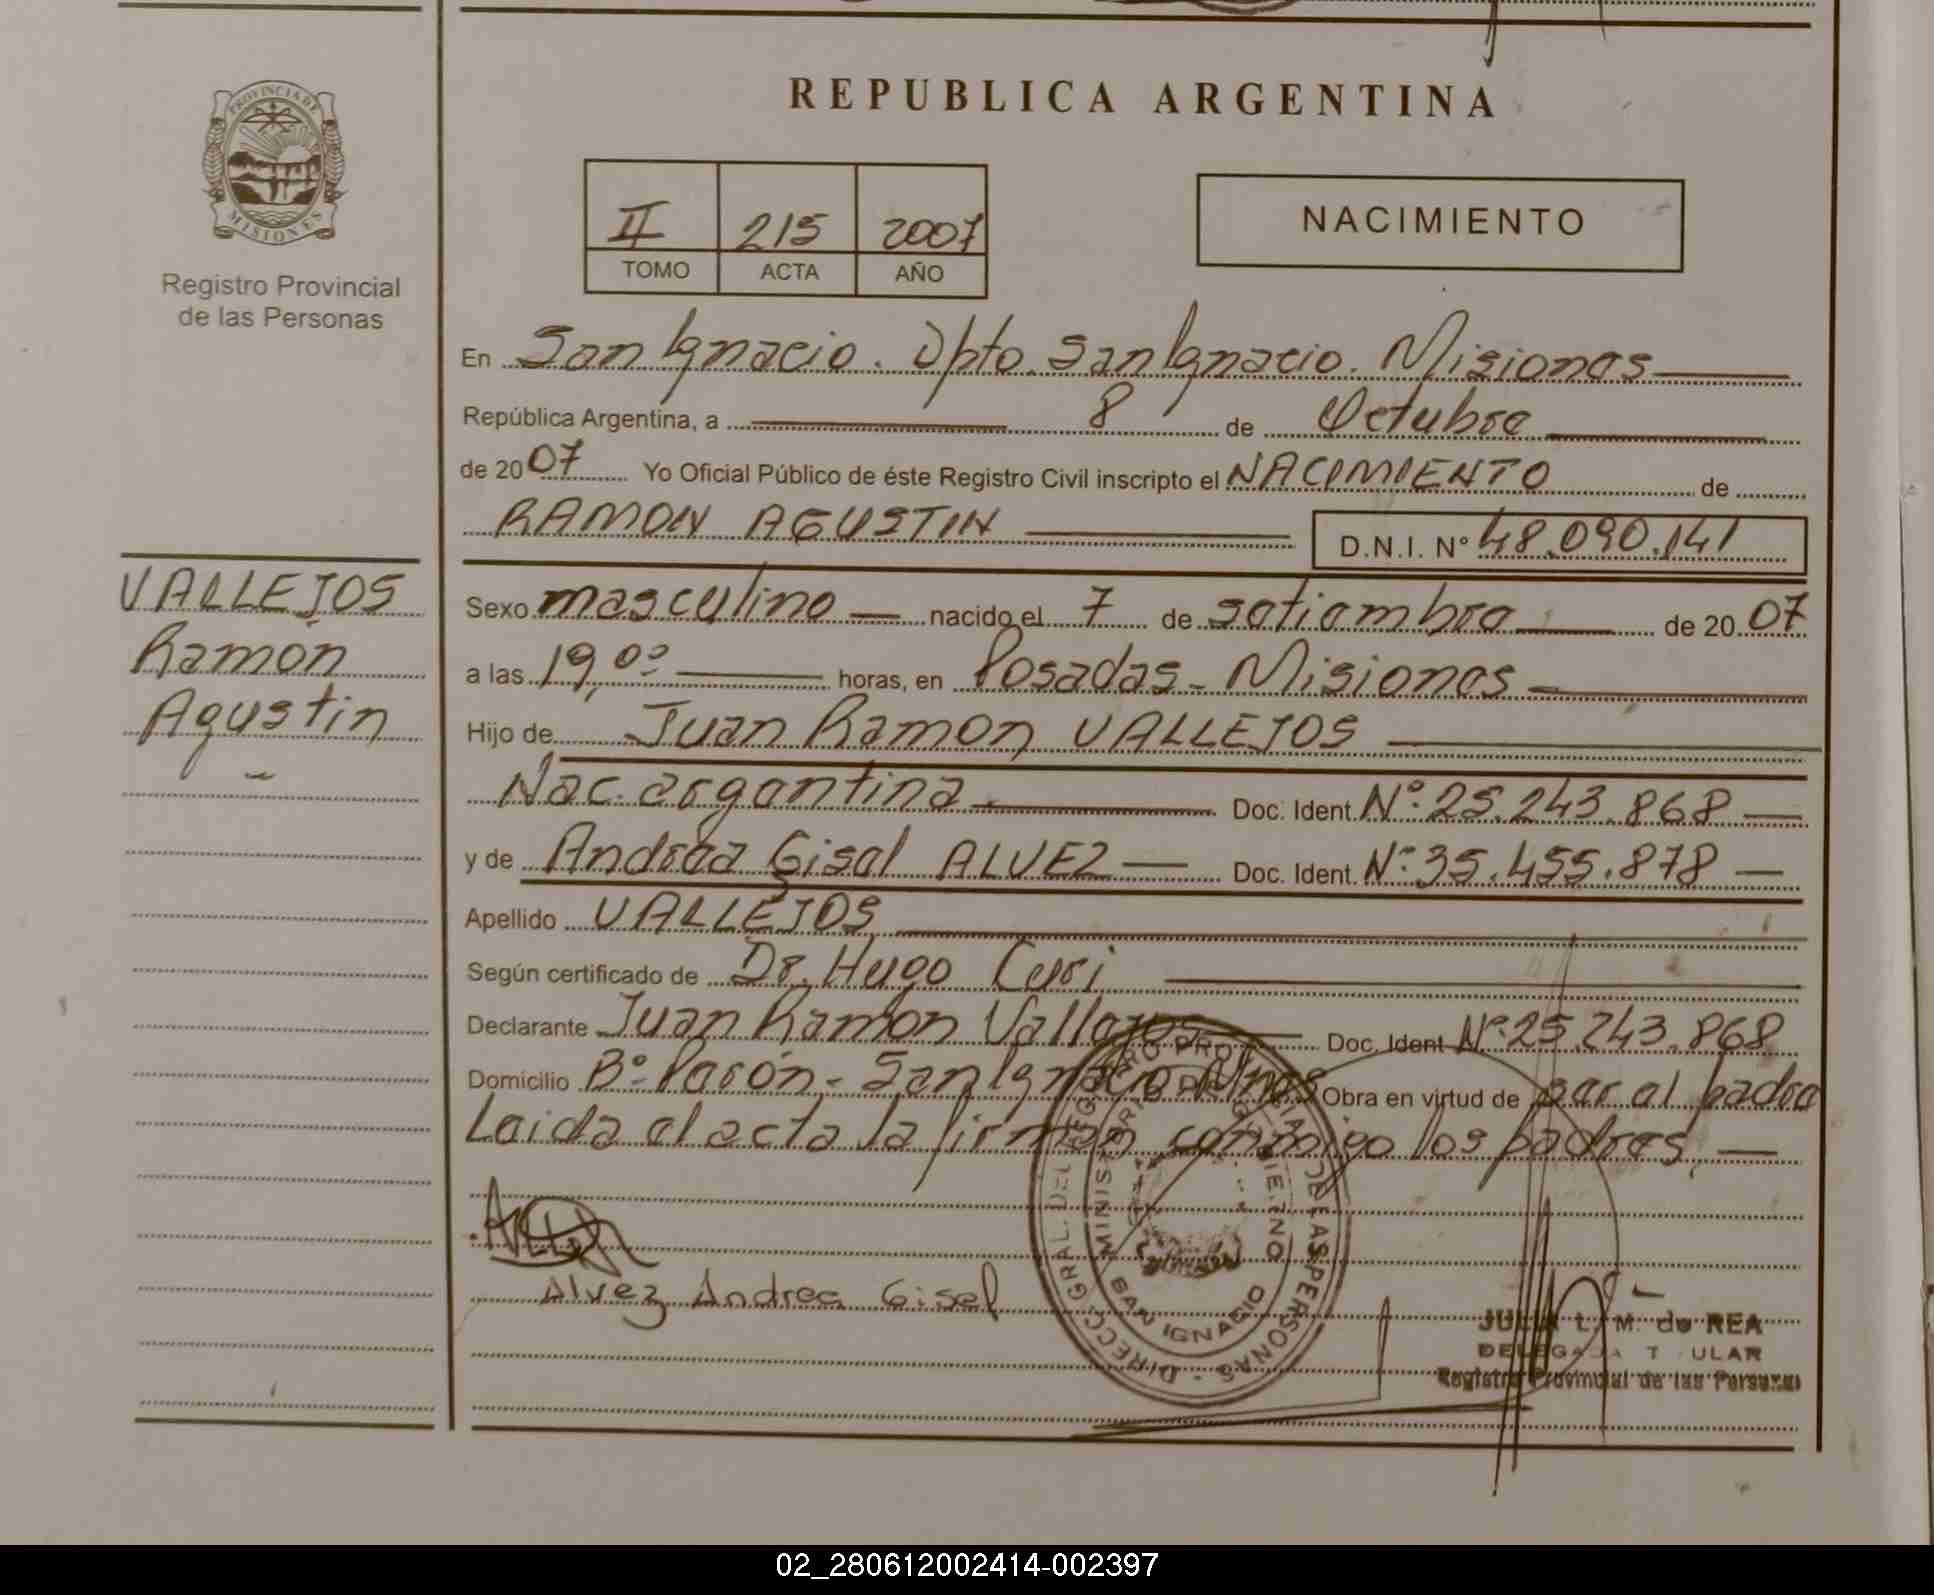 PROVINCIA DE
MISIONES
Registro Provincial
de las Personas
VALLEJOS
Ramón
Agustin
REPUBLICA ARGENTINA
II 215 2007
TOMO ACTA AÑO
NACIMIENTO
En San Ignacio. Dpto. San Ignacio. Misiones
República Argentina, a 8 de Octubre
de 2007 Yo Oficial Público de éste Registro Civil inscripto el NACIMIENTO de
RAMON AGUSTIN D.N.I. Nº 48.090.141
Sexo masculino nacido el 7 de setiembre de 20 07
a las 19,00 horas, en Posadas - Misiones
Hijo de Juan Ramon VALLEJOS
Nac. argentina Doc. Ident. Nº: 25.243.868
y de Andrea Gisel ALVEZ Doc. Ident. Nº: 35.455.878
Apellido VALLEJOS
Según certificado de Dr. Hugo Curi
Declarante Juan Ramon Vallejos Doc. Ident Nº 25.243.868
Domicilio Bº Perón - San Ignacio Mnes Obra en virtud de ser el padre
Leida el acta la firman conmigo los padres,
Alvez Andrea Gisel
DIRECC. GRAL. DEL REGISTRO PROVINCIAL DE LAS PERSONAS
MINISTERIO DE GOBIERNO
SAN IGNACIO
JULIA L. M. de REA
DELEGADA TITULAR
Registro Provincial de las Personas
02_280612002414-002397